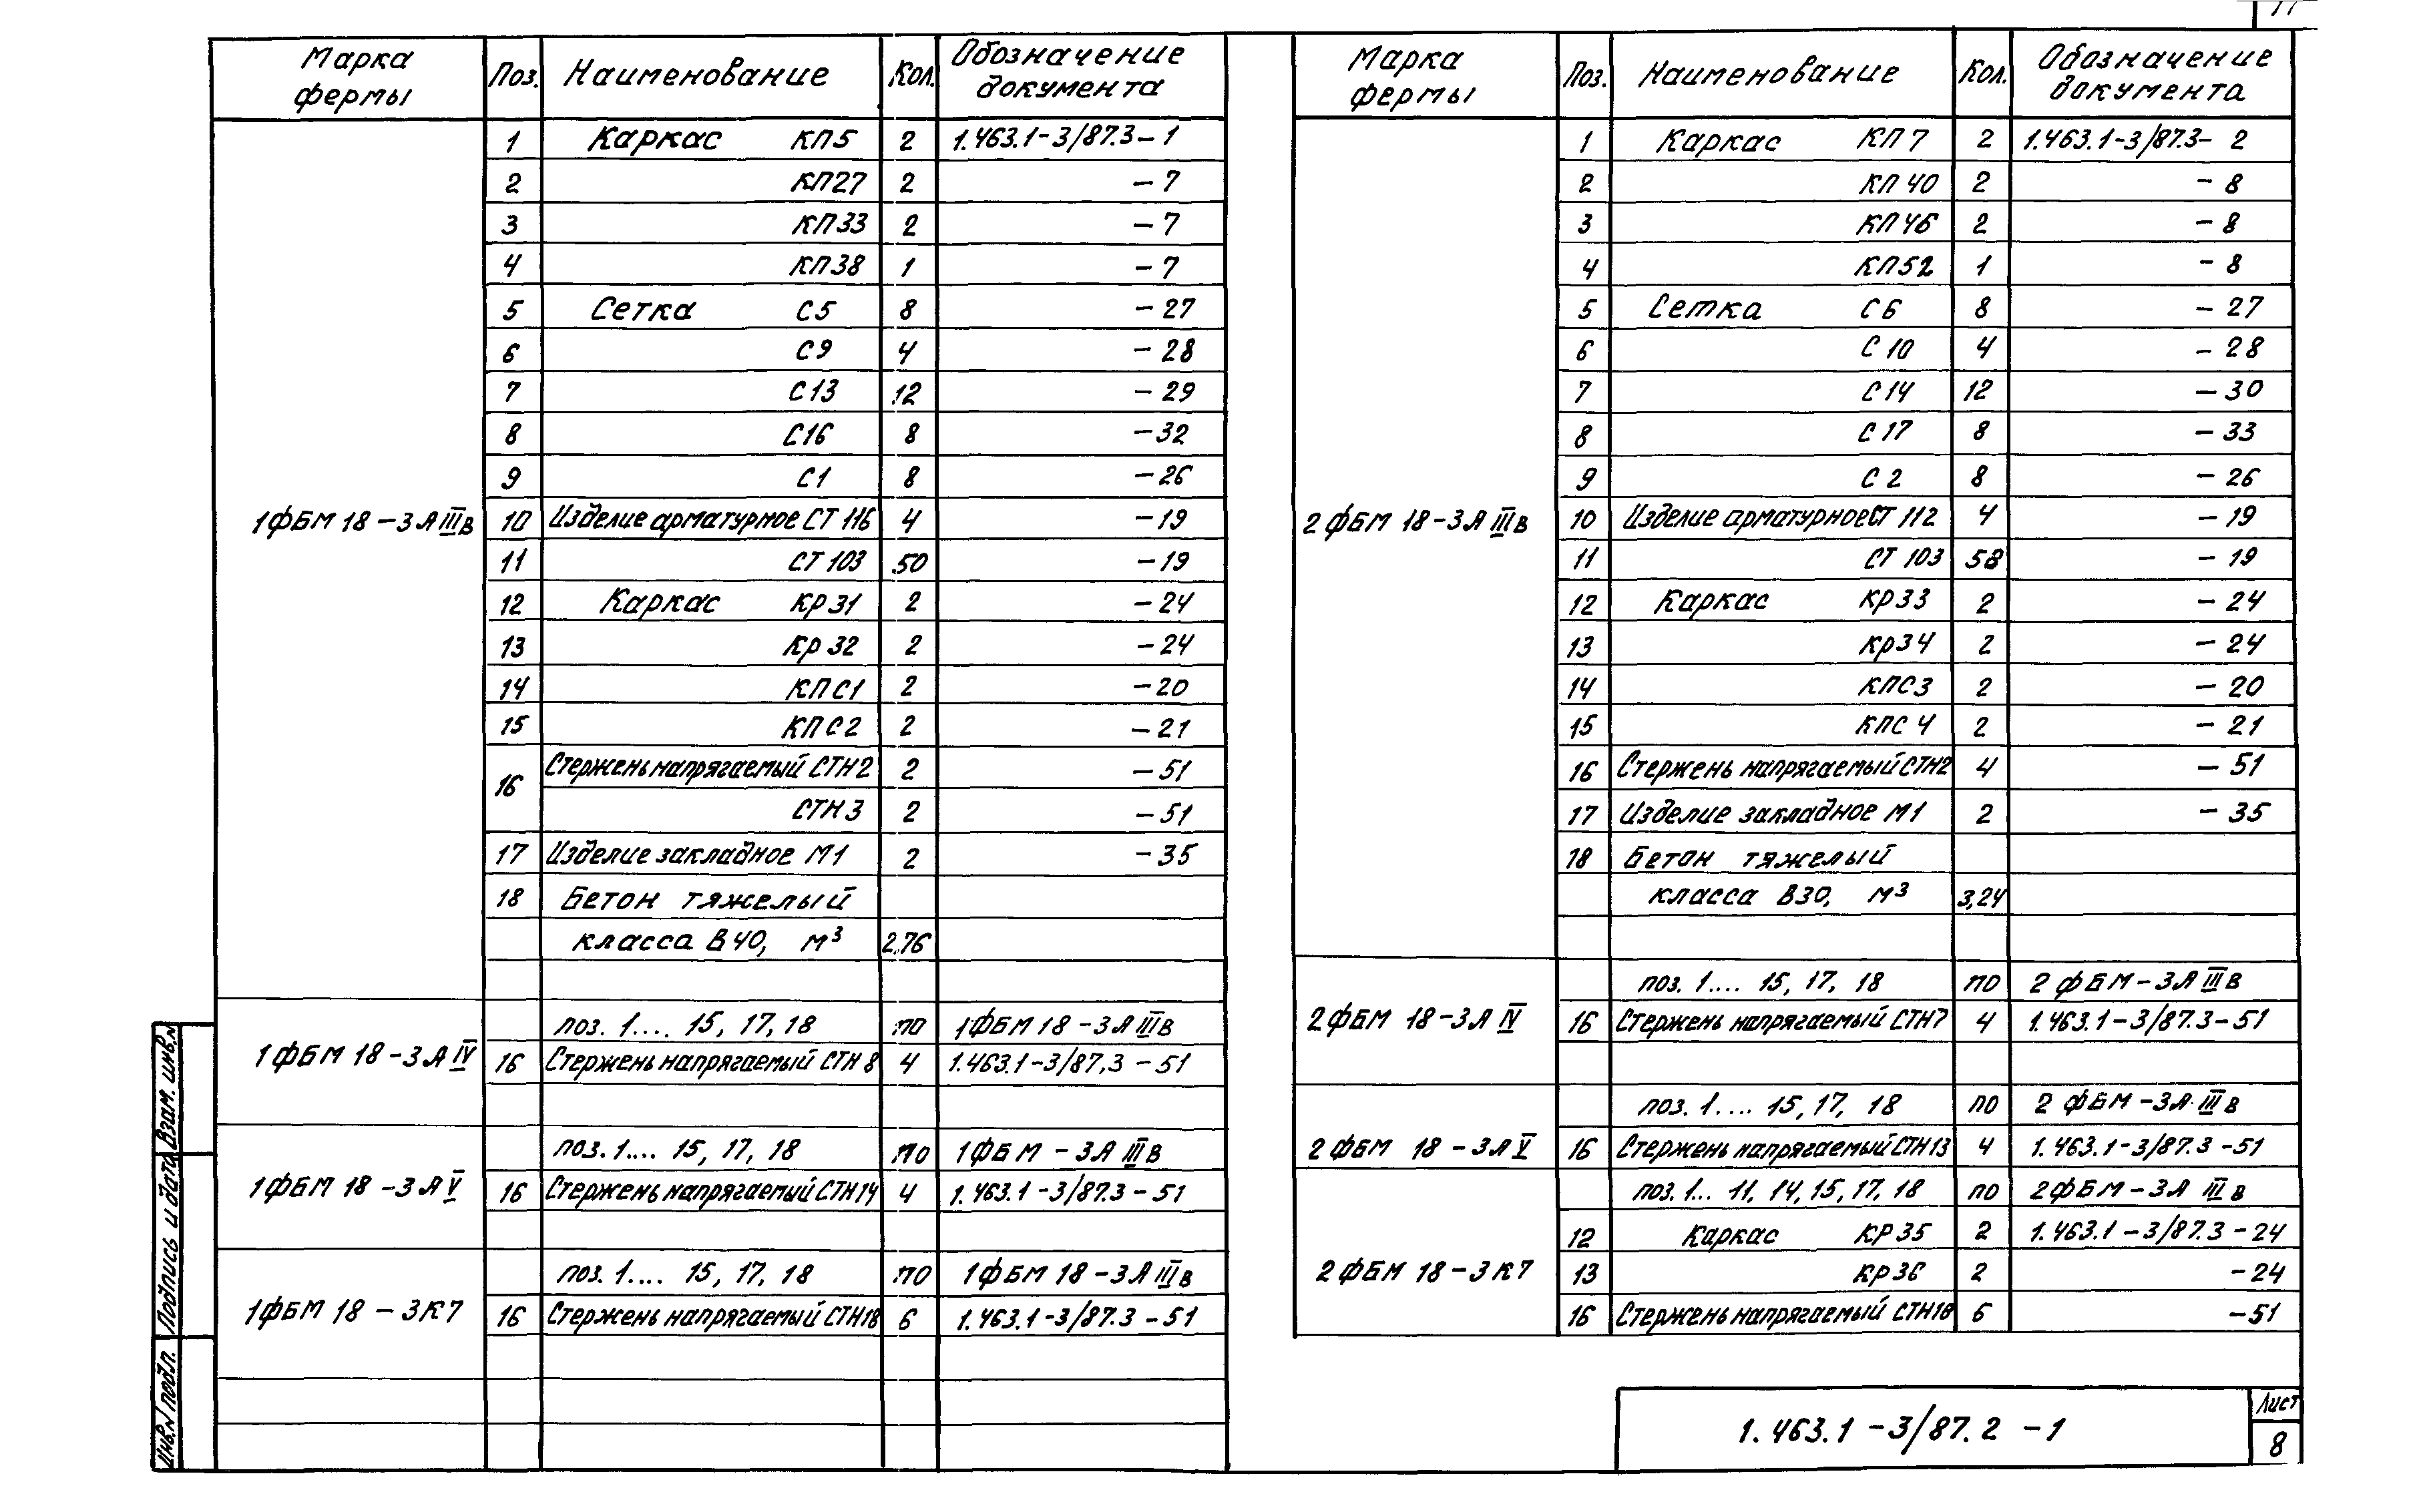 Марка фермы Поз. Наименование Кол. Обозначение документа
1ФБМ 18-3АIIIв
1 Каркас КП5 2 1.463.1-3/87.3-1
2 КП27 2 -7
3 КП33 2 -7
4 КП38 1 -7
5 Сетка С5 8 -27
6 С9 4 -28
7 С13 12 -29
8 С16 8 -32
9 С1 8 -26
10 Изделие арматурное СТ 116 4 -19
11 СТ 103 50 -19
12 Каркас КР31 2 -24
13 КР32 2 -24
14 КПС1 2 -20
15 КПС2 2 -21
16 Стержень напрягаемый СТН2 2 -51
СТН3 2 -51
17 Изделие закладное М1 2 -35
18 Бетон тяжелый
класса В40, м³ 2,76
1ФБМ 18-3АIV
поз. 1.... 15, 17, 18 по 1ФБМ 18-3АIIIв
16 Стержень напрягаемый СТН8 4 1.463.1-3/87.3-51
1ФБМ 18-3АV
поз. 1.... 15, 17, 18 по 1ФБМ-3АIIIв
16 Стержень напрягаемый СТН14 4 1.463.1-3/87.3-51
1ФБМ 18-3К7
поз. 1.... 15, 17, 18 по 1ФБМ 18-3АIIIв
16 Стержень напрягаемый СТН18 6 1.463.1-3/87.3-51
Марка фермы Поз. Наименование Кол. Обозначение документа
2ФБМ 18-3АIIIв
1 Каркас КП7 2 1.463.1-3/87.3-2
2 КП40 2 -8
3 КП46 2 -8
4 КП52 1 -8
5 Сетка С6 8 -27
6 С10 4 -28
7 С14 12 -30
8 С17 8 -33
9 С2 8 -26
10 Изделие арматурное СТ 112 4 -19
11 СТ 103 58 -19
12 Каркас КР33 2 -24
13 КР34 2 -24
14 КПС3 2 -20
15 КПС4 2 -21
16 Стержень напрягаемый СТН2 4 -51
17 Изделие закладное М1 2 -35
18 Бетон тяжелый
класса В30, м³ 3,24
2ФБМ 18-3АIV
поз. 1.... 15, 17, 18 по 2ФБМ-3АIIIв
16 Стержень напрягаемый СТН7 4 1.463.1-3/87.3-51
2ФБМ 18-3АV
поз. 1.... 15, 17, 18 по 2ФБМ-3АIIIв
16 Стержень напрягаемый СТН13 4 1.463.1-3/87.3-51
2ФБМ 18-3К7
поз. 1... 11, 14, 15, 17, 18 по 2ФБМ-3АIIIв
12 Каркас КР35 2 1.463.1-3/87.3-24
13 КР36 2 -24
16 Стержень напрягаемый СТН18 6 -51
Инв.N подл. Подпись и дата Взам. инв.N
1.463.1-3/87.2 -1
Лист
8